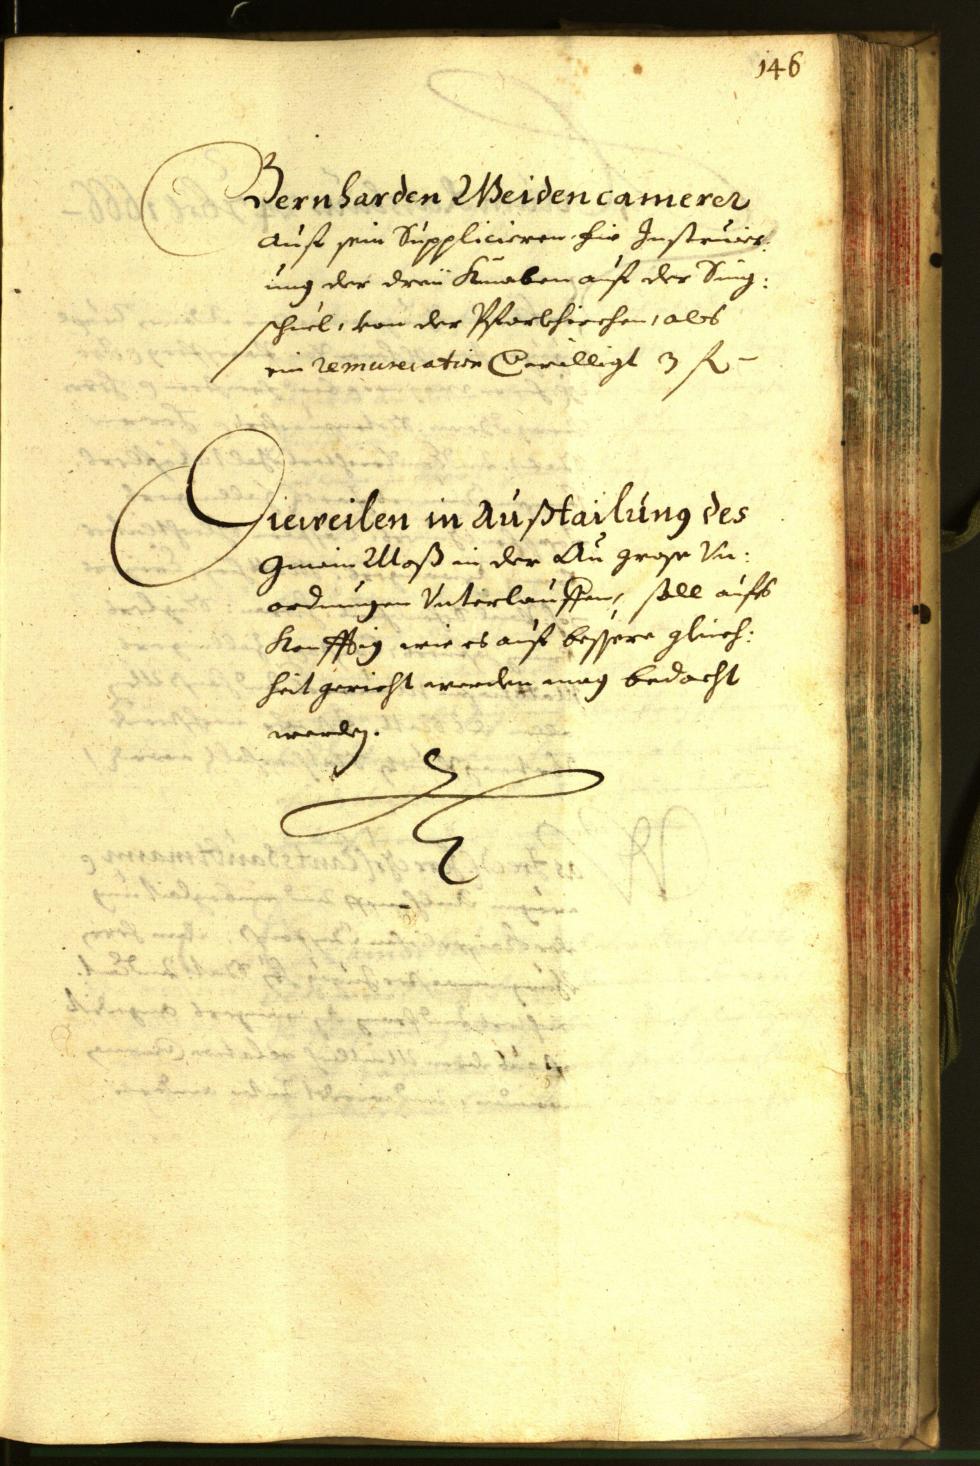 146
Bernharden Weidencamerer
auf sein Suppliciern für Instruir:
ung der dreÿ Knaben auf der Sing:
schuel, von der Pfarkhirchen, als
ein remuneration Bewilligt 3 f –
Dieweilen in Außtailung des
Gmain Moß in der Au grose Un:
ordnungen Vnterlauffen, soll aufs
Konfftig wie es auf bessere gleich:
heit gericht werden mag bedacht
werden.